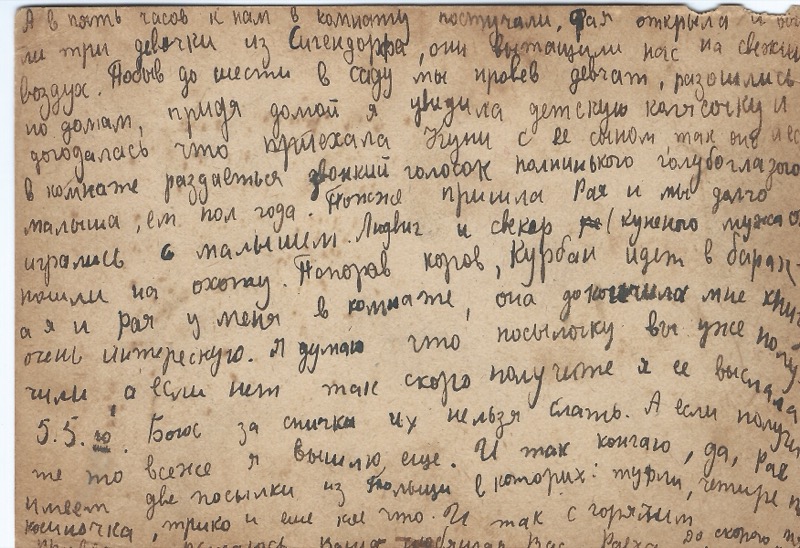 А в пять часов к нам в комнату постучали, Рая открыла и
ли три девочки из Сигендорфа, они вытащили нас на свежий
воздух. Побыв до шести в саду мы провев девчат, разошлись
по домам, придя домой я увидила детскую калясочку и
догодалась что приехала Куни с ее сыном, так оно и ес
в комнате раздаеться звонкий голосок полнинького голубоглазого
малыша, ем пол года. Пожже пришла Рая и мы долго
игрались с малышем. Людвиг и свекор (куненого мужа о
пошли на охоту. Попоров коров, Курбан идет в барак-
а я и Рая у меня в комнате, она докончила мне книг
очень интерескую. Я думаю что посылочку вы уже полу
чили а если нет так скоро получите я ее выслала
5.5. . Боюс за спички их нельзя слать. А если получи
те то всеже я вышлю еще. И так кончаю, да, Рае
имеем две посылки из Польщи в которих: туфли, четире п
косиночка, трико и еще кое что. И так с горятим
Вас Раеха до скорого